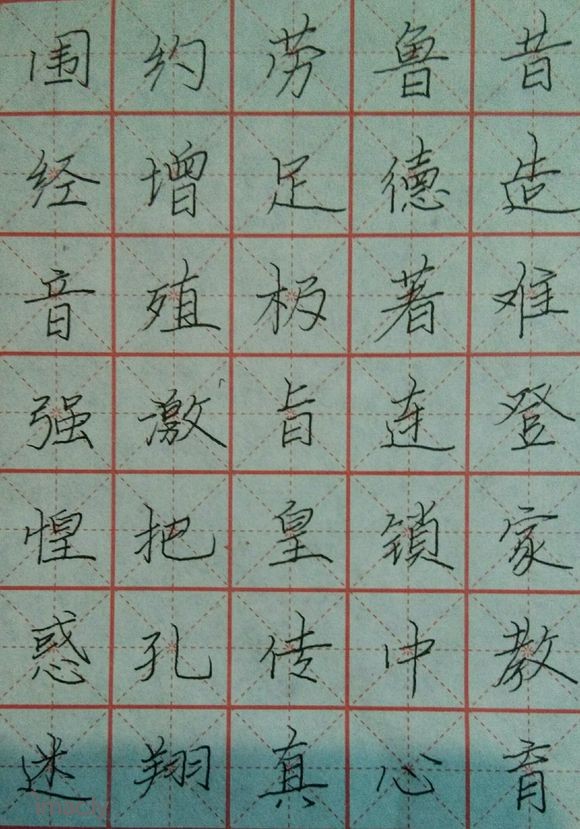 围约劳鲁昔
经增足德造
音殖极著难
强激旨连登
惶把皇锁家
惑孔传中教
迷翔真心育